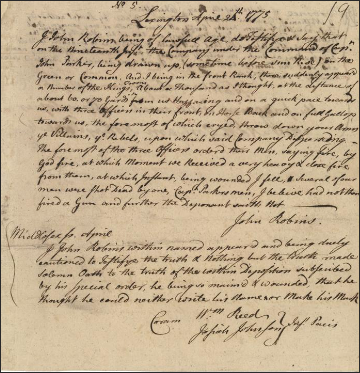 No 5
19
Lexington April 24th 1775
I John Robins, being of lawfull age, do Testifye & say that
on the Nineteenth Inst. the Company under the Command of Capt.
John Parker, being drawn up, (sometime before sun Rise) on the
Green or Common, and I being in the front Rank, there suddenly appeard
a Number of the Kings Troops, about a Thousand as I thought, at the distance of
about 60 or 70 yards from us Huzzaing and on a quick pace towards
us, with three Officers in their front on Horse Back and on full Gallop
towards us, the foremost of which cryed, throw down your Arms,
ye Villains, ye Rebels, upon which said Company Dispersing
the foremost of the three Officers orderd their Men, saying, fire, by
God fire, at which Moment we Received a very heavy & close fire
from them, at which Instant, being wounded I fell, & several of our
men were shot Dead by me, Capt. Parkers men, I beleive had not then
fired a Gun and further the Deponent saith not
John Robins.
Middlesex ss. April
John Robins within named appeard and being duly
cautioned to Testifye the truth & Nothing but the truth made
solemn Oath to the truth of the within Deposition subscribed
by his special order, he being so maimed & wounded, that he
thought he could neither write his Name or Make his Mark
Wm Reed
Josiah Johnson
Just Pacis